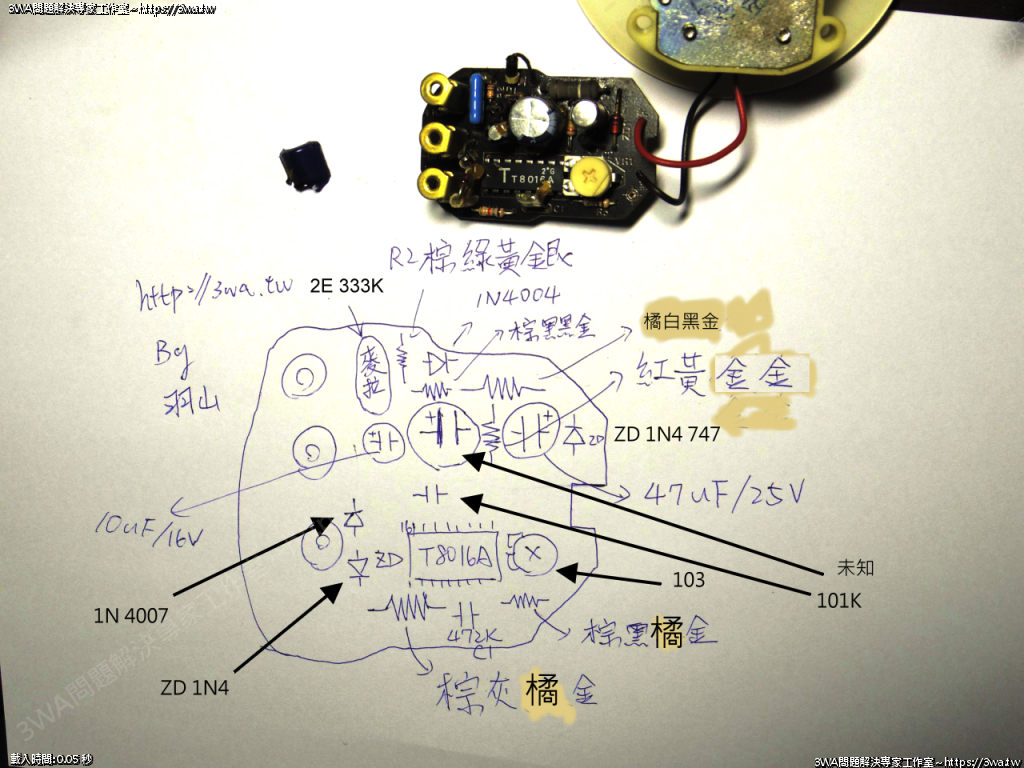 3WA問題解決專家工作室~https://3wa.tw
T
2*G
T8016A
R2棕綠黃銀
http://3wa.tw
2E 333K
1N4004
棕黑黑金
橘白黑金
By
羽山
麥拉
紅黃金金
ZD
ZD 1N4 747
47uF/25V
10uF/16V
ZD
T8016A
未知
103
101K
1N 4007
棕黑橘金
472K
C1
ZD 1N4
棕灰橘金
3WA問題解決專家工作室
載入時間:0.05 秒
3WA問題解決專家工作室~https://3wa.tw